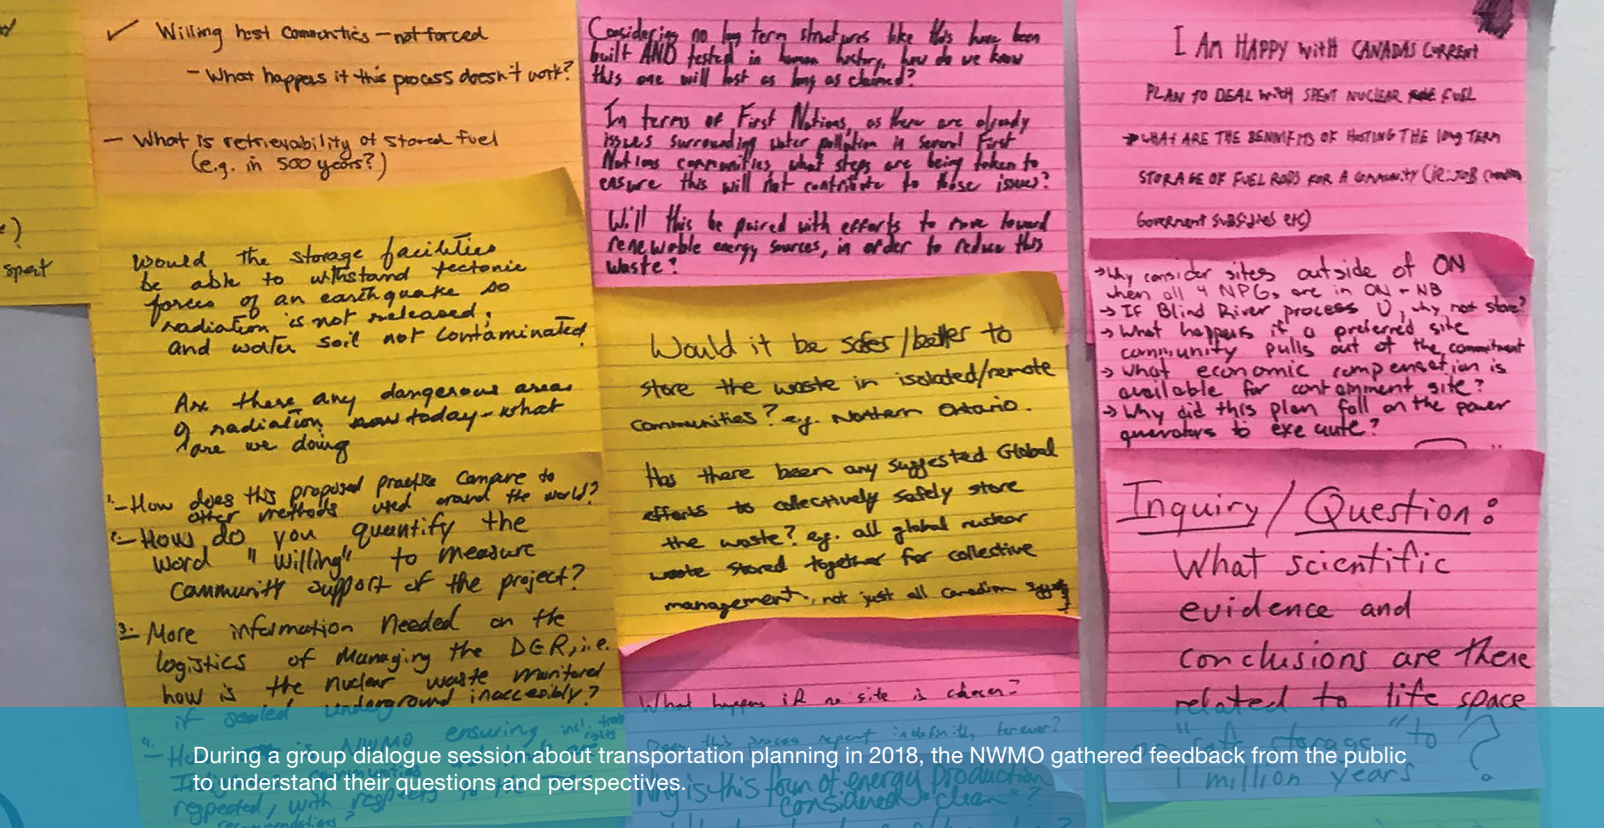 e)
spent
✓ Willing host communities – not forced
– What happens if this process doesn't work?
– What is retrievability of stored fuel
(e.g. in 500 years?)
Would the storage facilities
be able to withstand tectonic
forces of an earthquake so
radiation is not released,
and water soil not contaminated
Are there any dangerous areas
of radiation now today – what
are we doing
1- How does this proposed practice compare to
other methods used around the world?
2- How do you quantify the
word "willing" to measure
community support of the project?
3- More information needed on the
logistics of managing the DGR, i.e.
how is the nuclear waste monitored
if sealed underground inaccessibly?
4- How is NWMO ensuring
respected, with respect to
recommendations?
Considering no long term structures like this have been
built AND tested in human history, how do we know
this one will last as long as claimed?
In terms of First Nations, as there are already
issues surrounding water pollution in several First
Nations communities, what steps are being taken to
ensure this will not contribute to those issues?
Will this be paired with efforts to move toward
renewable energy sources, in order to reduce this
waste?
Would it be safer/better to
store the waste in isolated/remote
communities? e.g. Northern Ontario.
Has there been any suggested Global
efforts to collectively safely store
the waste? e.g. all global nuclear
waste stored together for collective
management, not just all Canadian
What happens if no site is chosen?
Does this process repeat indefinitely, forever?
Why is this form of energy production
considered "clean"?
I AM HAPPY WITH CANADAS CURRENT
PLAN TO DEAL WITH SPENT NUCLEAR FUEL
→ WHAT ARE THE BENNIFITS OF HOSTING THE LONG TERM
STORAGE OF FUEL RODS FOR A COMMUNITY (IE: JOB
GOVERNMENT SUBSIDIES ETC)
→ Why consider sites outside of ON
when all 4 NPGs are in ON + NB
→ If Blind River process U, why not store?
→ What happens if a preferred site
community pulls out of the commitment
→ What economic compensation is
available for containment site?
→ Why did this plan fall on the power
generators to execute?
Inquiry/Question:
What scientific
evidence and
conclusions are there
related to life space
"safe storage" to
1 million years?
During a group dialogue session about transportation planning in 2018, the NWMO gathered feedback from the public
to understand their questions and perspectives.